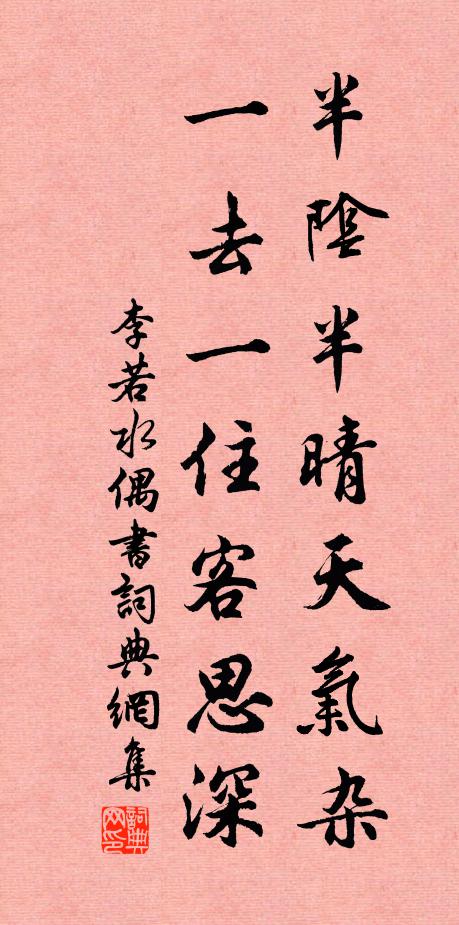 半陰半晴天氣杂
一去一住客思深
李若水偶書詞典網集
詞典网印